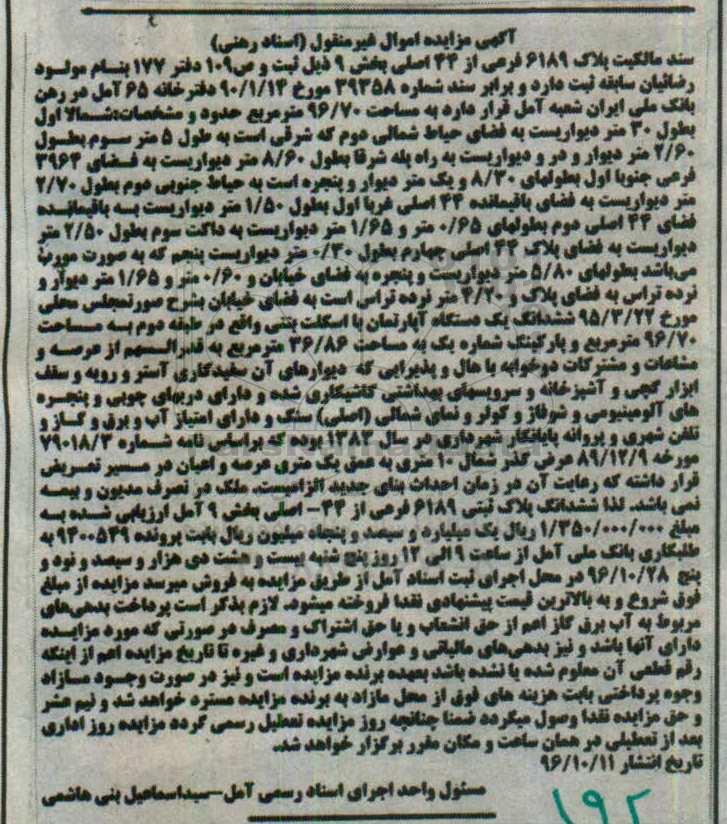 آگهی مزایده اموال غیرمنقول (اسناد رهنی)
سند مالکیت پلاک ۶۱۸۹ فرعی از ۴۴ اصلی بخش ۹ ذیل ثبت و ص۱۰۹ دفتر ۱۷۷ بنام مولود
رضائیان سابقه ثبت دارد و برابر سند شماره ۳۹۳۵۸ مورخ ۹۰/۱/۱۴ دفترخانه ۶۵ آمل در رهن
بانک ملی ایران شعبه آمل قرار دارد به مساحت ۹۶/۷۰ مترمربع حدود و مشخصات:شمالا اول
بطول ۳۰ متر دیواریست به فضای حیاط شمالی دوم که شرقی است به طول ۵ متر سوم بطول
۲/۶۰ متر دیوار و در و دیواریست به راه پله شرقا بطول ۸/۶۰ متر دیواریست به فضای ۳۹۶۴
فرعی جنوبا اول بطولهای ۸/۳۰ و یک متر دیوار و پنجره است به حیاط جنوبی دوم بطول ۲/۷۰
متر دیواریست به فضای باقیمانده ۴۴ اصلی غربا اول بطول ۱/۵۰ متر دیواریست به باقیمانده
فضای ۴۴ اصلی دوم بطولهای ۰/۶۵ متر و ۱/۶۵ متر دیواریست به داکت سوم بطول ۲/۵۰ متر
دیواریست به فضای پلاک ۴۴ اصلی چهارم بطول ۰/۳۰ متر دیواریست پنجم که به صورت مورب
می‌باشد بطولهای ۵/۸۰ متر دیواریست و پنجره به فضای خیابان و ۰/۶۰ متر و ۱/۶۵ متر دیوار و
نرده تراس به فضای پلاک و ۴/۲۰ متر نرده تراس است به فضای خیابان بشرح صورتمجلس محلی
مورخ ۹۵/۳/۲۲ ششدانگ یک دستگاه آپارتمان با اسکلت بتنی واقع در طبقه دوم به مساحت
۹۶/۷۰ مترمربع و پارکینگ شماره یک به مساحت ۳۶/۸۶ مترمربع به قدرالسهم از عرصه و
مشاعات و مشترکات دوخوابه با هال و پذیرایی که دیوارهای آن سفیدکاری آستر و رویه و سقف
ابزار گچی و آشپزخانه و سرویسهای بهداشتی کاشیکاری شده و دارای دربهای چوبی و پنجره
های آلومینیومی و شوفاژ و کولر و نمای شمالی (اصلی) سنگ و دارای امتیاز آب و برق و گاز و
تلفن شهری و پروانه پایانکار شهرداری در سال ۱۳۸۳ بوده که براساس نامه شماره ۷۹۰۱۸/۳
مورخه ۸۹/۱۲/۹ عرض گذر شمال ۱۰ متری به عمق یک متری عرصه و اعیان در مسیر تعریض
قرار داشته که رعایت آن در زمان احداث بنای جدید الزامیست. ملک در تصرف مدیون و بیمه
نمی باشد. لذا ششدانگ پلاک ثبتی ۶۱۸۹ فرعی از ۴۴- اصلی بخش ۹ آمل ارزیابی شده به
مبلغ ۱/۳۵۰/۰۰۰/۰۰۰ ریال یک میلیارد و سیصد و پنجاه میلیون ریال بابت پرونده ۹۴۰۰۵۴۹ به
طلبکاری بانک ملی آمل از ساعت ۹ الی ۱۲ روز پنج شنبه بیست و هشت دی هزار و سیصد و نود و
پنج ۹۶/۱۰/۲۸ در محل اجرای ثبت اسناد آمل از طریق مزایده به فروش میرسد مزایده از مبلغ
فوق شروع و به بالاترین قیمت پیشنهادی نقدا فروخته میشود. لازم بذکر است پرداخت بدهی‌های
مربوط به آب برق گاز اعم از حق انشعاب و یا حق اشتراک و مصرف در صورتی که مورد مزایده
دارای آنها باشد و نیز بدهی‌های مالیاتی و عوارض شهرداری و غیره تا تاریخ مزایده اعم از اینکه
رقم قطعی آن معلوم شده یا نشده باشد بعهده برنده مزایده است و نیز در صورت وجود مازاد
وجوه پرداختی بابت هزینه های فوق از محل مازاد به برنده مزایده مسترد خواهد شد و نیم عشر
و حق مزایده نقدا وصول میگردد ضمنا چنانچه روز مزایده تعطیل رسمی گردد مزایده روز اداری
بعد از تعطیلی در همان ساعت و مکان مقرر برگزار خواهد شد.
تاریخ انتشار ۹۶/۱۰/۱۱
مسئول واحد اجرای اسناد رسمی آمل-سیداسماعیل بنی هاشمی
۱۹۲